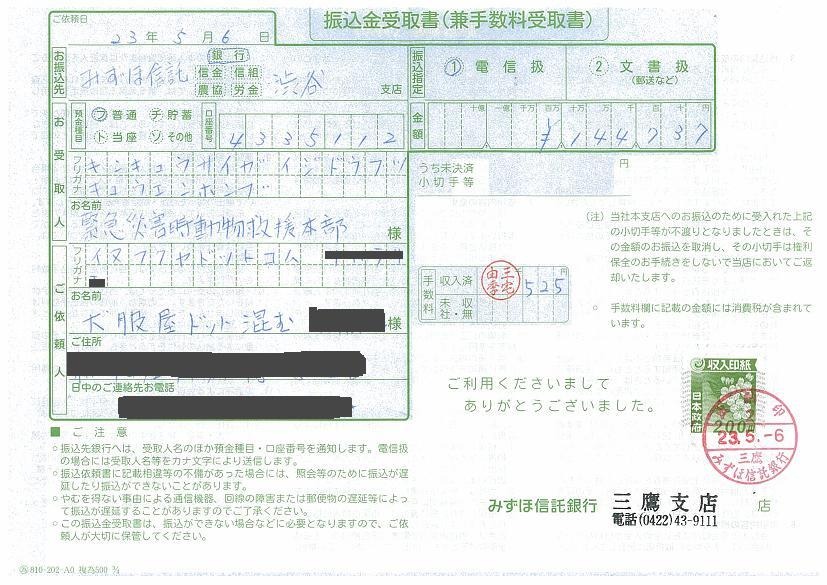 振込金受取書(兼手数料受取書)
ご依頼日
23年 5月 6日
お振込先
みずほ信託 銀行 信金 信組 農協 労金 渋谷 支店
振込指定
① 電信扱
② 文書扱
(郵送など)
お受取人
預金種目
フ 普通 チ 貯蓄
ト 当座 ソ その他
口座番号
4335112
金額
十億 一億 千万 百万 十万 万 千 百 十 円
¥144737
フリガナ
キンキュウサイガイジドウブツ
キュウエンホンブ
お名前
緊急災害時動物救援本部 様
うち未決済
小切手等
円
ご依頼人
フリガナ
イヌフクヤドットコム
お名前
犬服屋ドット混む 様
ご住所
日中のご連絡先お電話
手数料
収入済
三宅由季
千 円
525
未収
社・無
(注) 当社本支店へのお振込のために受入れた上記
の小切手等が不渡りとなりましたときは、そ
の金額のお振込を取消し、その小切手は権利
保全のお手続きをしないで当店においてご返
却いたします。
○ 手数料欄に記載の金額には消費税が含まれて
います。
ご利用くださいまして
ありがとうございました。
収入印紙
日本政府
200円
印
23.5.-6
三鷹
みずほ信託銀行
■ ご注意
○振込先銀行へは、受取人名のほか預金種目・口座番号を通知します。電信扱
の場合には受取人名等をカナ文字により送信します。
○振込依頼書に記載相違等の不備があった場合には、照会等のために振込が遅
延したり振込ができないことがあります。
○やむを得ない事由による通信機器、回線の障害または郵便物の遅延等によっ
て振込が遅延することがありますのでご了承ください。
○この振込金受取書は、振込ができない場合などに必要となりますので、ご依
頼人が大切に保管してください。
みずほ信託銀行 三鷹支店 店
電話(0422)43-9111
810-202-A0 複為500 ¾